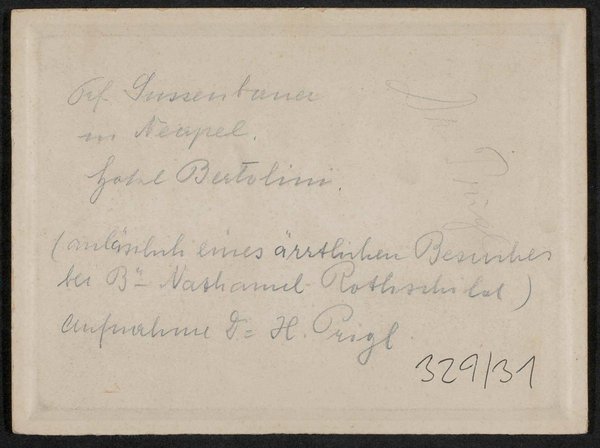 Prf. Sussenbauer
in Neapel.
Hotel Bertolini.
(anlässlich eines ärztlichen Besuches
bei Bn Nathaniel Rothschild)
Aufnahme Dr H. Prigl.
329/31
Dr Prigl